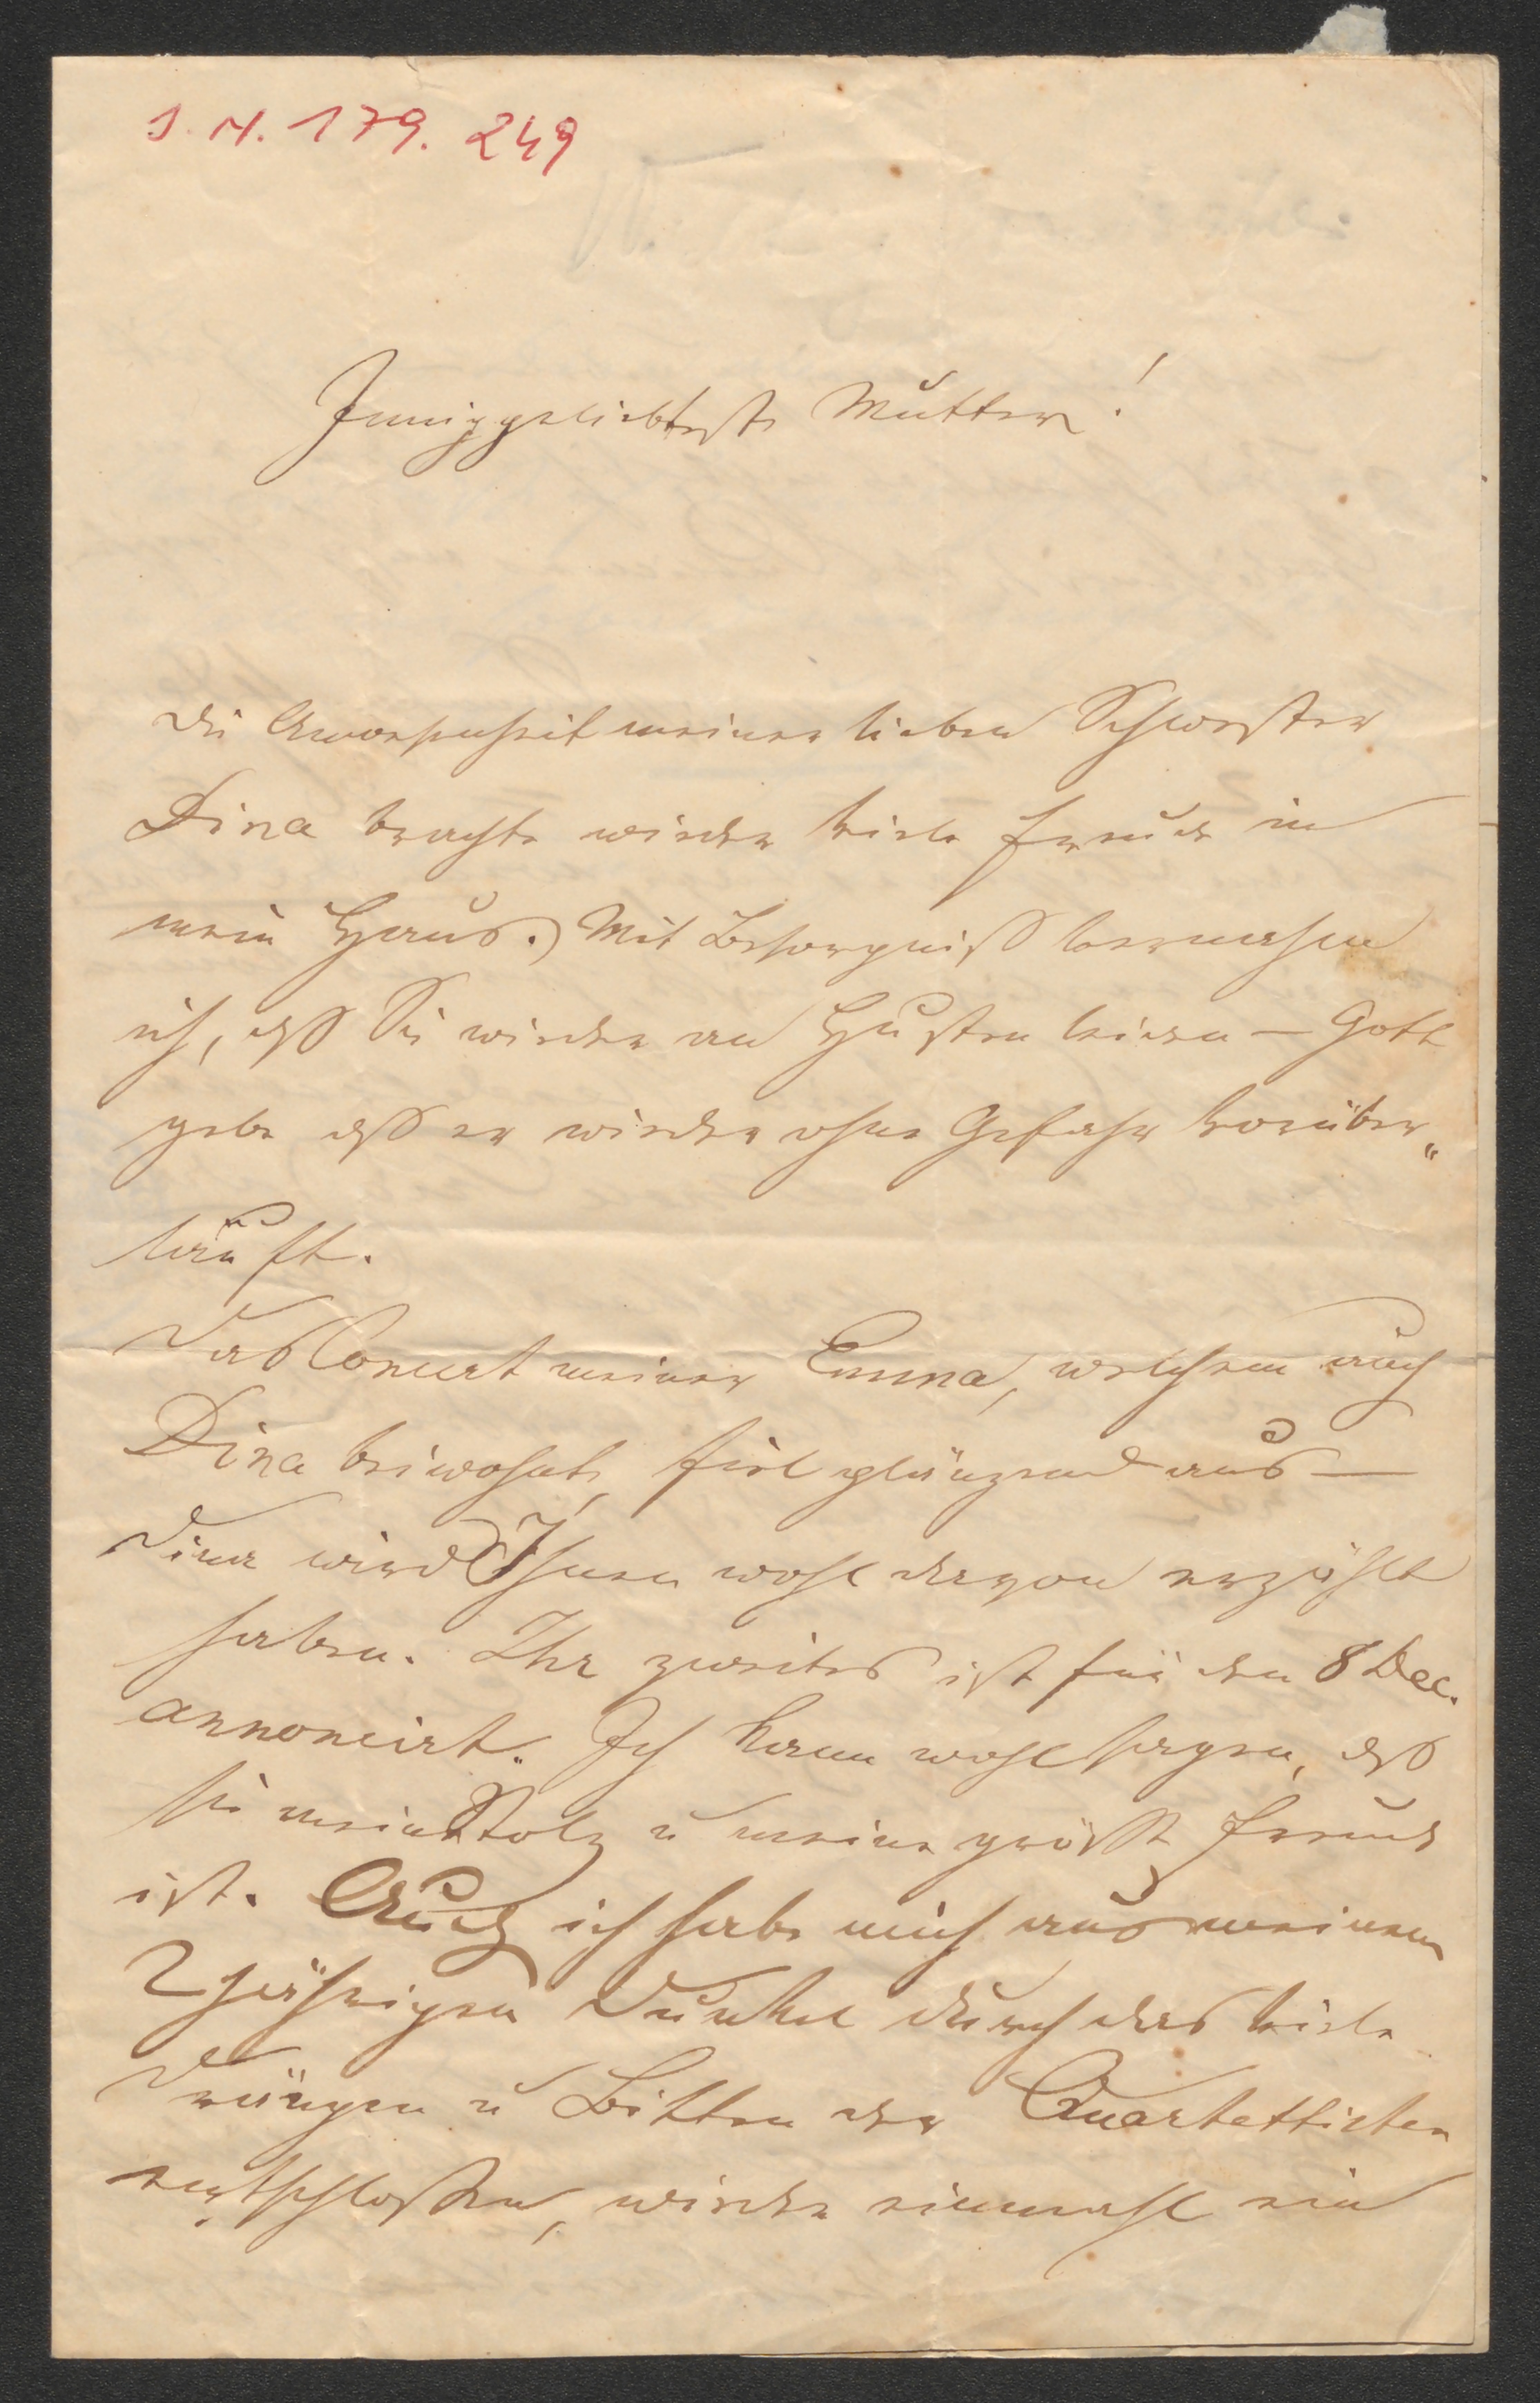 J. N. 179.249
Inniggeliebteste Mutter!
Die Anwesenheit meiner lieben Schwester
Dina brachte wieder viele Freude in
mein Haus. Mit Besorgniß vernahm
ich, daß Sie wieder an Husten leiden – Gott
gebe daß er wieder ohne Gefahr vorüber„
läuft.
Das Concert meiner Emma, welchem auch
Dina beiwohnte, fiel glänzend aus –
Dina wird Ihnen wohl davon erzählt
haben. Ihr zweites ist für den 8 Dec.
annoncirt. Ich kann wohl sagen, daß
sie mein Stolz u meine größte Freude
ist. Auch ich habe mich aus meinem
2jährigen Dunkel durch das viele
Drängen u Bitten der Quartettisten
entschloßen, wieder einmahl ein